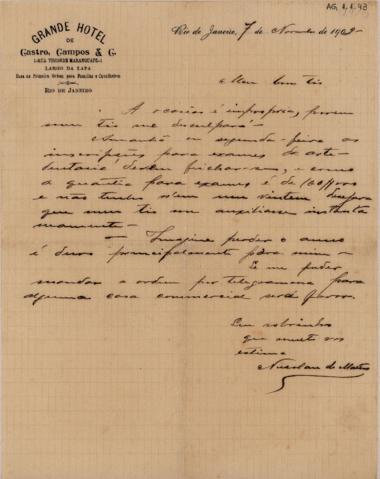 AG, 1.1.43
GRANDE HOTEL
DE
Castro, Campos & C.
1-RUA VISCONDE MARANGUAPE-1
LARGO DA LAPA
Casa de Primeira Ordem para Familias e Cavalheiros
RIO DE JANEIRO
Rio de Janeiro, 7 de Novembro de 190
Meu bom tio
A ocasião é impropria, porem
meu tio me desculpará.
Amanhã ou segunda-feira as
inscripções para exames de
devem fechar-se, e como
a quantia para exames é de
e não tenho nem um vintem
que meu tio me auxiliasse
Imagine perder o anno
é duro principalmente para mim
Se me puder
mandar a ordem por telegramma para
alguma casa commercial
Seu sobrinho
que muito vos
estima
de Mattos